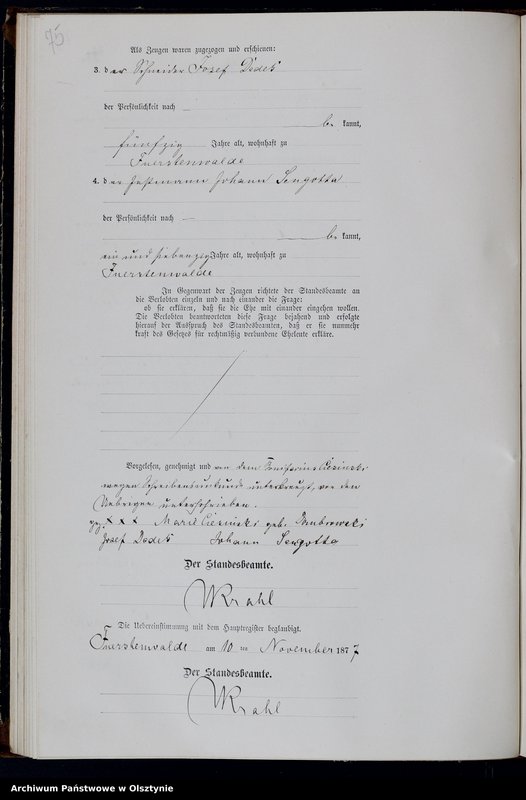 75
Als Zeugen waren zugezogen und erschienen:
3. der Schneider Josef Dedek
der Persönlichkeit nach
be kannt,
fünfzig Jahre alt, wohnhaft zu
Fuerstenwalde
4. der Johann Sengotta
der Persönlichkeit nach
be kannt,
ein und siebenzig Jahre alt, wohnhaft zu
Fuerstenwalde
In Gegenwart der Zeugen richtete der Standesbeamte an
die Verlobten einzeln und nach einander die Frage:
ob sie erklären, daß sie die Ehe mit einander eingehen wollen.
Die Verlobten beantworteten diese Frage bejahend und erfolgte
hierauf der Ausspruch des Standesbeamten, daß er sie nunmehr
kraft des Gesetzes für rechtmäßig verbundene Eheleute erkläre.
Vorgelesen, genehmigt und von dem
wegen Schreibensunkunde unterkreuzt, von den
Uebrigen unterschrieben.
gez. x x x Marie geb. Dombrowski
Josef Dedek Johann Sengotta
Der Standesbeamte.
WKrahl
Die Uebereinstimmung mit dem Hauptregister beglaubigt.
Fuerstenwalde am 10 ten November 1877
Der Standesbeamte.
WKrahl
Archiwum Państwowe w Olsztynie